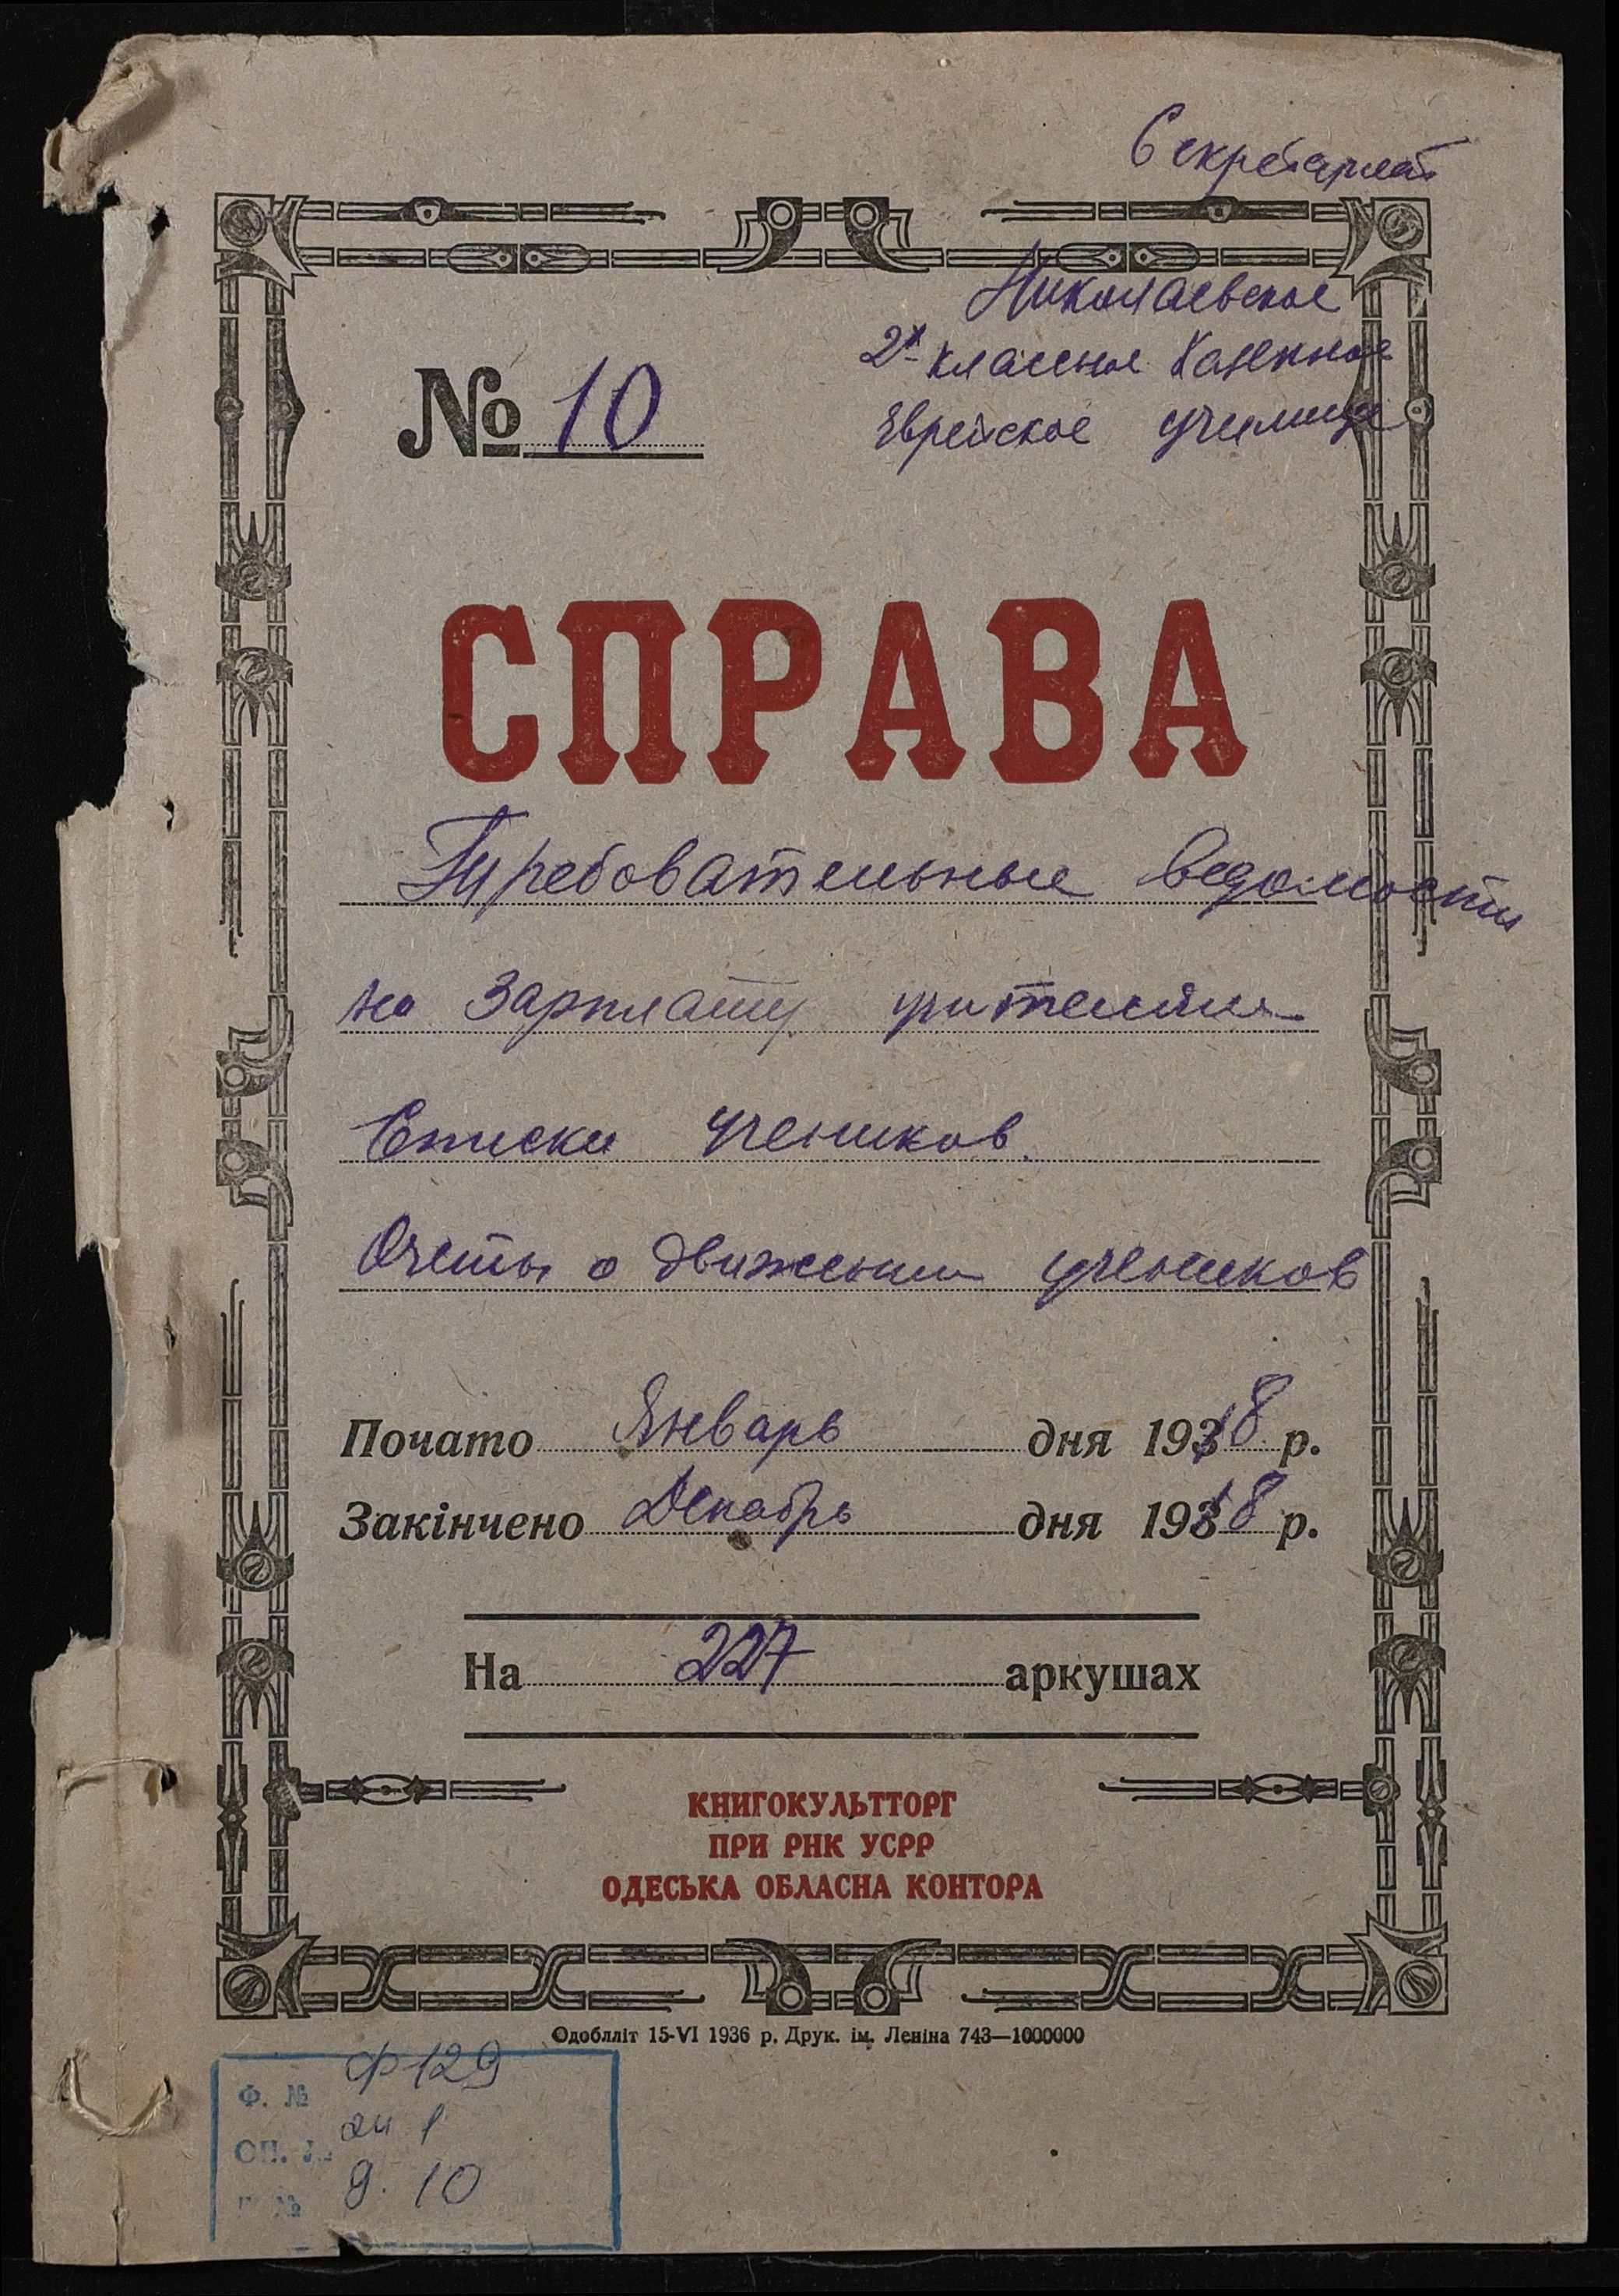 Секретариат
Николаевское
2х классное Казенное
Еврейское училище
№ 10
СПРАВА
Требовательные ведомости
на Зарплату учителям
Списки учеников.
Очеты о движении учеников
Почато Январь дня 1918 р.
Закінчено Декабрь дня 1918 р.
На 227 аркушах
КНИГОКУЛЬТТОРГ
ПРИ РНК УСРР
ОДЕСЬКА ОБЛАСНА КОНТОРА
Одоблліт 15-VI 1936 р. Друк. ім. Леніна 743—1000000
Ф. № ф 129
ОП. № оп 1
№ д. 10